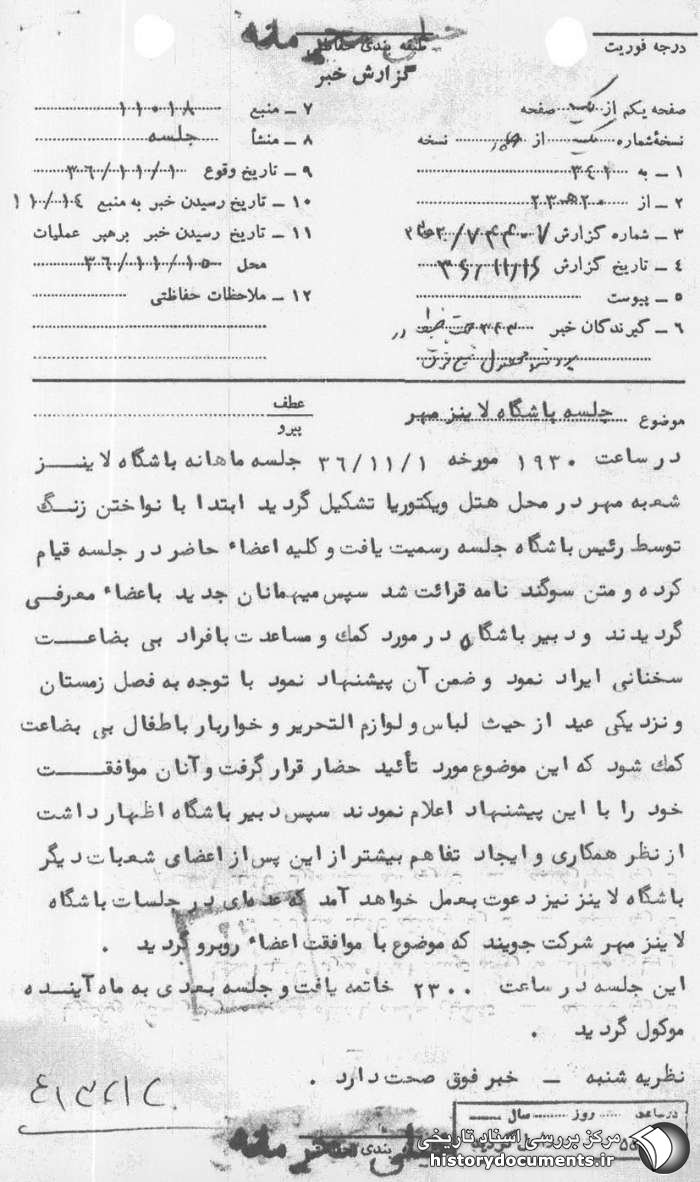 خیلی محرمانه
درجه فوریت
طبقه بندی حفاظتی
گزارش خبر
صفحه یکم از یک صفحه
نسخهٔ شماره یک از نسخه
۱ ـ به ۳۴۲
۲ ـ از ۲۰ ه ۲۳
۳ ـ شماره گزارش
۴ ـ تاریخ گزارش ۳۶/۱۱/۱۶
۵ ـ پیوست
۶ ـ گیرندگان خبر
۷ ـ منبع ۱۱۰۱۸
۸ ـ منشأ جلسه
۹ ـ تاریخ وقوع ۳۶/۱۱/۱
۱۰ ـ تاریخ رسیدن خبر به منبع ۱۱/۱۴
۱۱ ـ تاریخ رسیدن خبر برهبر عملیات
محل ۳۶/۱۱/۱۵
۱۲ ـ ملاحظات حفاظتی
موضوع جلسه باشگاه لاینز مهر
عطف
پیرو
در ساعت ۱۹۳۰ مورخه ۳۶/۱۱/۱ جلسه ماهانه باشگاه لاینز
شعبه مهر در محل هتل ویکتوریا تشکیل گردید ابتدا با نواختن زنگ
توسط رئیس باشگاه جلسه رسمیت یافت و کلیه اعضاء حاضر در جلسه قیام
کرده و متن سوگند نامه قرائت شد سپس میهمانان جدید باعضاء معرفی
گردیدند و دبیر باشگاه در مورد کمك و مساعدت بافراد بی بضاعت
سخنانی ایراد نمود و ضمن آن پیشنهاد نمود با توجه به فصل زمستان
و نزدیکی عید از حیث لباس و لوازم التحریر و خواربار باطفال بی بضاعت
کمك شود که این موضوع مورد تأئید حضار قرار گرفت و آنان موافقت
خود را با این پیشنهاد اعلام نمودند سپس دبیر باشگاه اظهار داشت
از نظر همکاری و ایجاد تفاهم بیشتر از این پس از اعضای شعبات دیگر
باشگاه لاینز نیز دعوت بعمل خواهد آمد که عده‌ای در جلسات باشگاه
لاینز مهر شرکت جویند که موضوع با موافقت اعضاء روبرو گردید .
این جلسه در ساعت ۲۳۰۰ خاتمه یافت و جلسه بعدی به ماه آینده
موکول گردید .
نظریه شنبه ـ خبر فوق صحت دارد .
در ساعت روز سال
مرکز بررسی اسناد تاریخی
historydocuments.ir
خیلی محرمانه